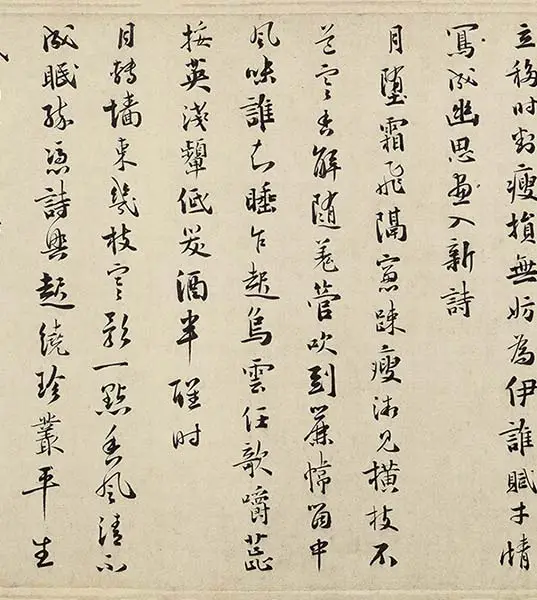 立移时判瘦損無妨為伊誰賦才情
寫成幽思畫入新詩
月墮霜飛隔窗疎瘦微見橫枝不
道寒香解隨羌管吹到簾幃箇中
風味誰知睡乍起烏雲任欹嚼蕊
挼英淺顰低笑酒半醒时
月轉墻東幾枝寒影一點香風清不
成眠醉憑詩興起繞珍叢平生